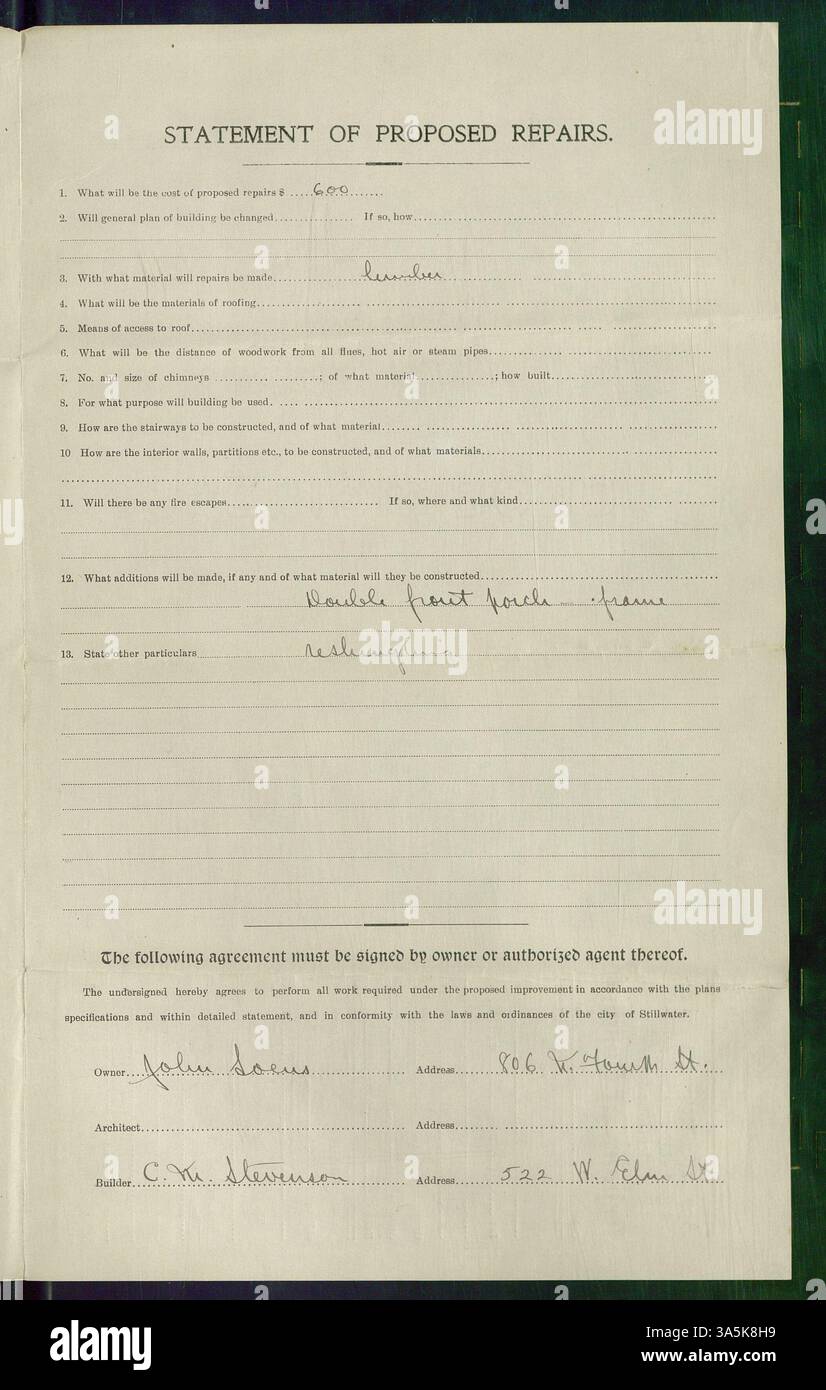 STATEMENT OF PROPOSED REPAIRS.
1. What will be the cost of proposed repairs $ 600
2. Will general plan of building be changed If so, how
3. With what material will repairs be made lumber
4. What will be the materials of roofing
5. Means of access to roof
6. What will be the distance of woodwork from all flues, hot air or steam pipes
7. No. and size of chimneys ; of what material ; how built
8. For what purpose will building be used
9. How are the stairways to be constructed, and of what material
10 How are the interior walls, partitions etc., to be constructed, and of what materials
11. Will there be any fire escapes If so, where and what kind
12. What additions will be made, if any and of what material will they be constructed
Double front porch frame
13. State other particulars reshingling
The following agreement must be signed by owner or authorized agent thereof.
The undersigned hereby agrees to perform all work required under the proposed improvement in accordance with the plans
specifications and within detailed statement, and in conformity with the laws and ordinances of the city of Stillwater.
Owner John Address 806 Fourth St.
Architect Address
Builder C. M. Stevenson Address 522 W. Elm St
alamy
Image ID: 3A5K8H9
www.alamy.com